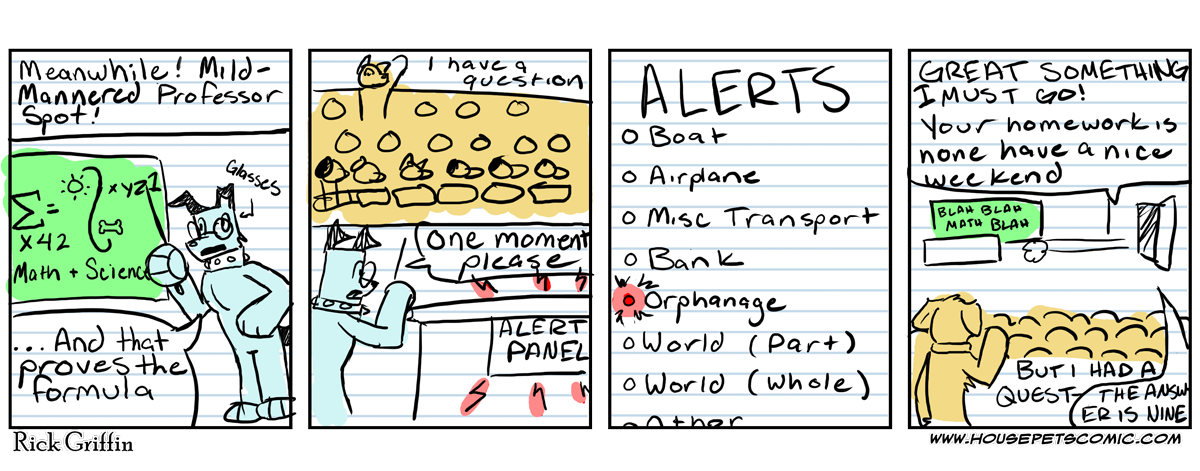 Meanwhile! Mild-
Mannered Professor
Spot!
Glasses
Σ = x yz1
x 42
Math + Science
... And that
proves the
formula
I have a
question
One moment
please
ALERT
PANEL
ALERTS
Boat
Airplane
Misc Transport
Bank
Orphanage
World (Part)
World (Whole)
Other
GREAT SOMETHING
I MUST GO!
Your homework is
none have a nice
weekend
BLAH BLAH
MATH BLAH
BUT I HAD A
QUEST-
THE ANSW
ER IS NINE
Rick Griffin
WWW.HOUSEPETSCOMIC.COM